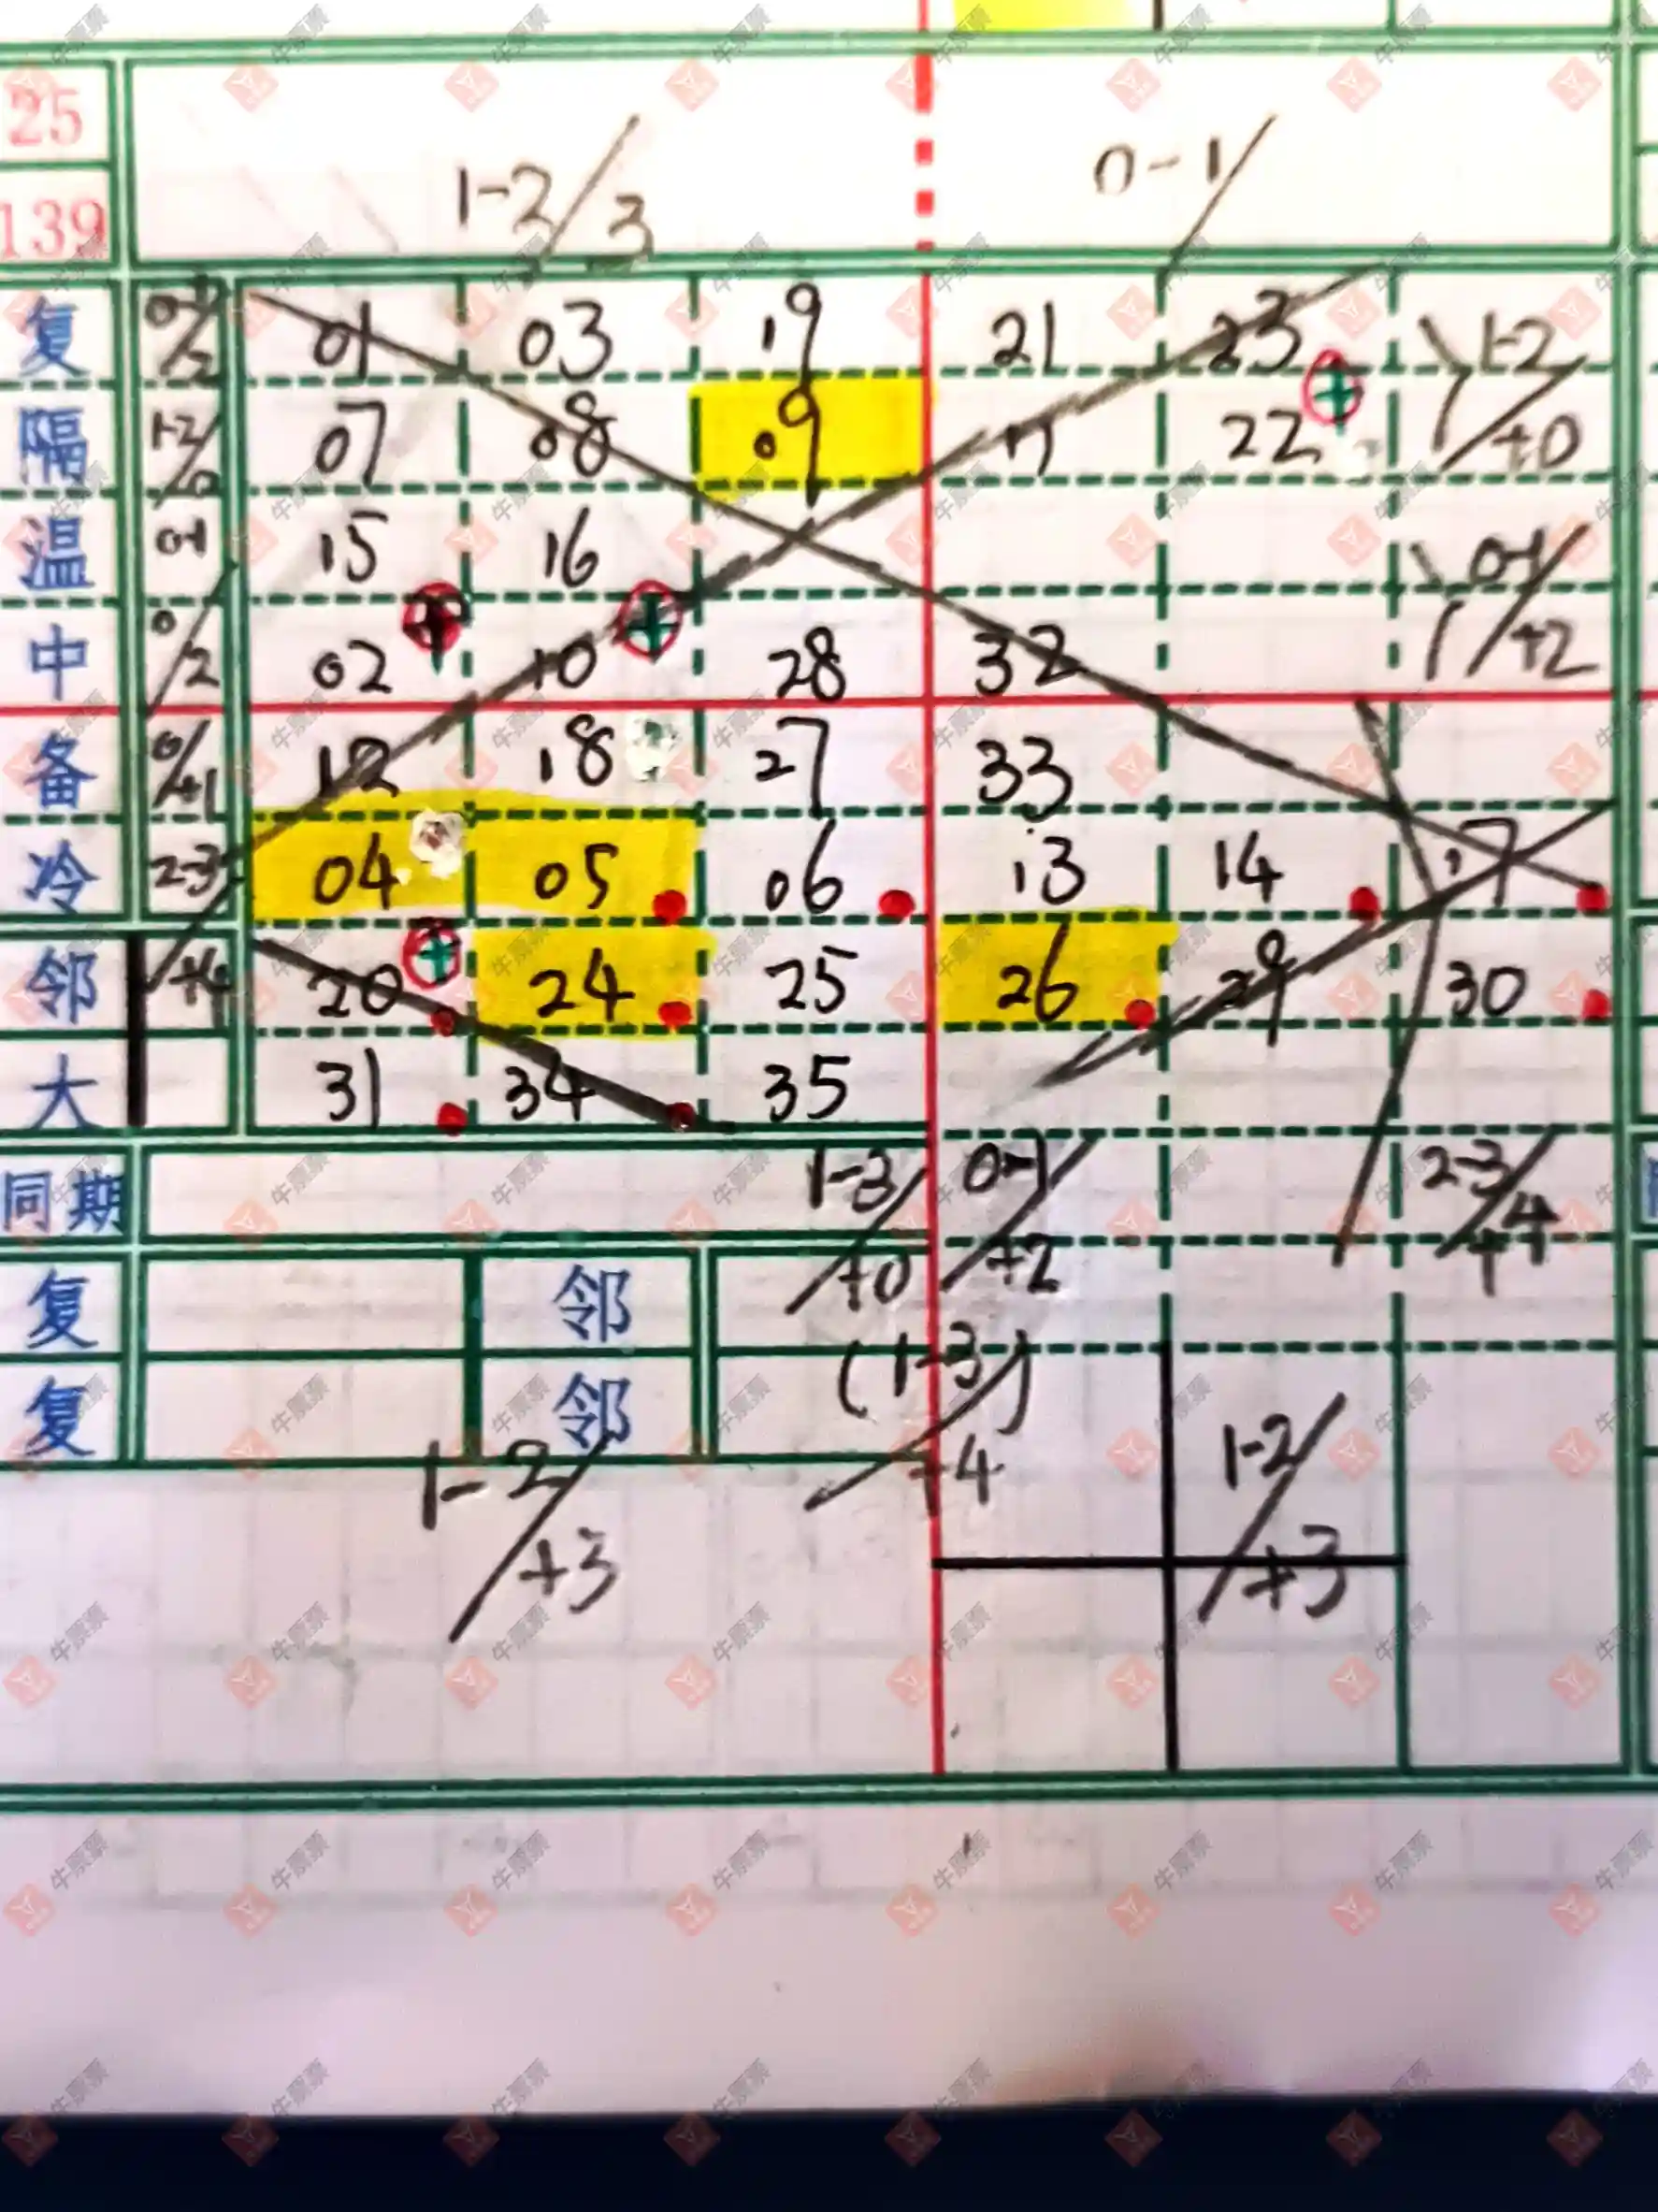 25
1-2/3 0-1/
139
复 0-1/2 01 03 19 21 23 1-2/+0
隔 1-2/0 07 08 09 11 22
温 0-1 15 16 0-1/+2
中 0/2 02 10 28 32
备 0/+1 12 18 27 33
冷 2-3 04 05 06 13 14 17
邻 +4 20 24 25 26 29 30
大 31 34 35
同期 1-3/+0 0-1/+2 2-3/+4
复 邻
复 邻 (1-3)/+4
1-2/+3 1-2/+3
牛票票